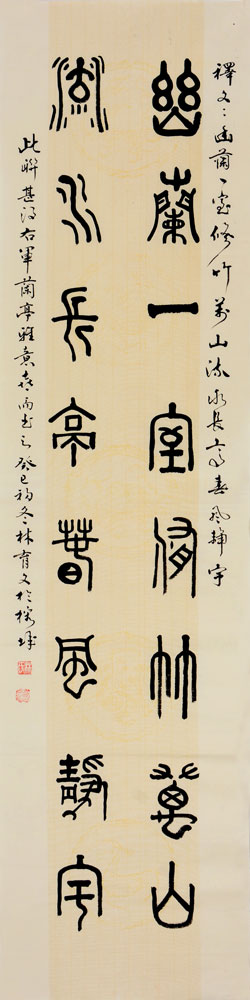 釋文：幽蘭一室修竹萬山流水長亭春風靜宇
幽蘭一室脩竹萬山
流水長亭春風靜宇
此聯甚得右軍蘭亭雅意喜而書之癸巳初冬林育文於榕城